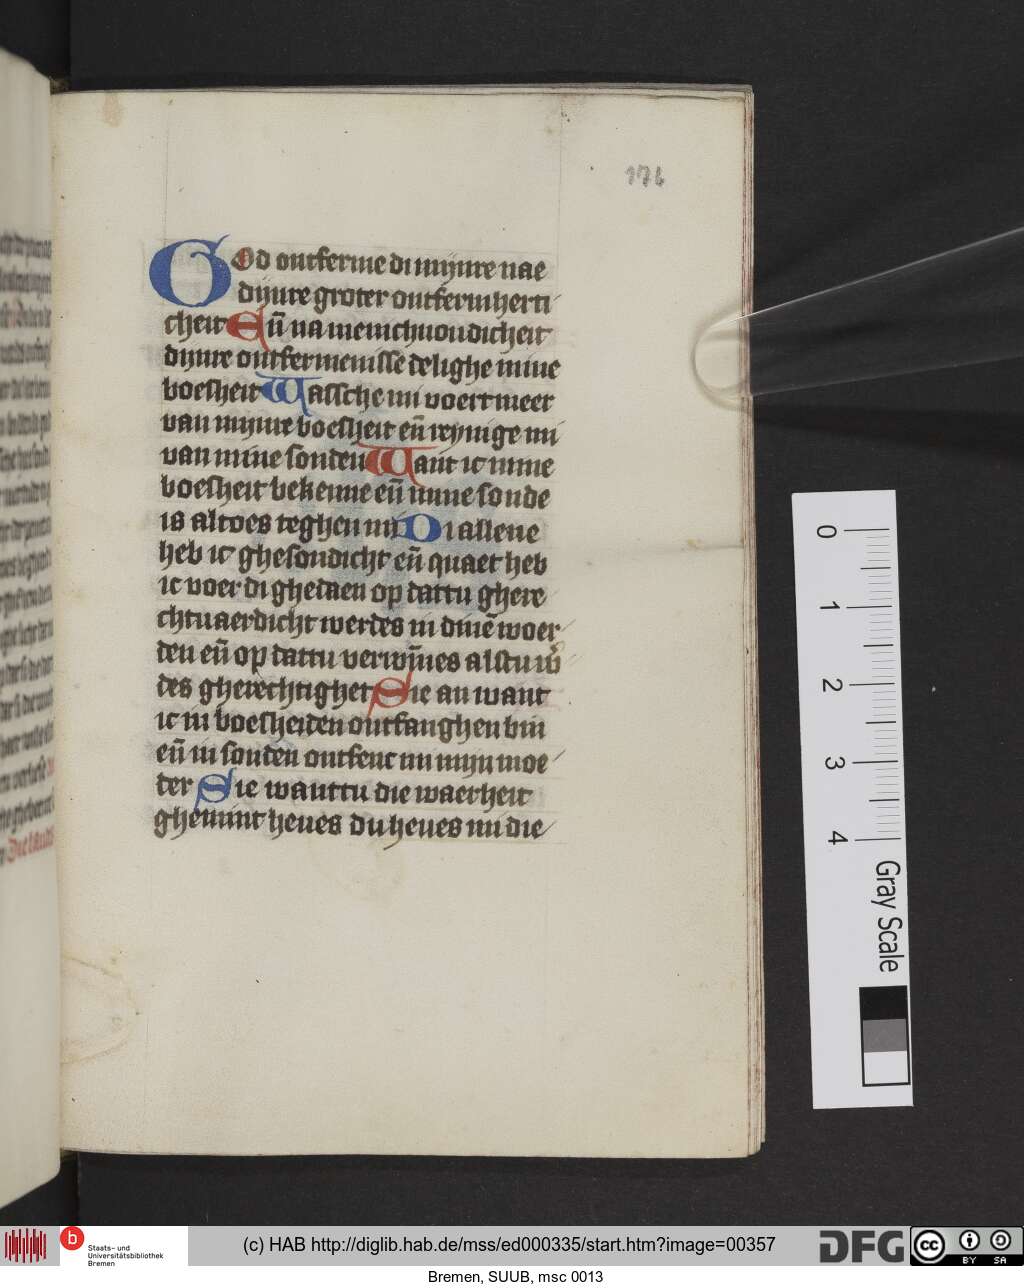 176
God ontferme di mijnre nae
dijnre groter ontfermherti
cheit Eñ na menichuoudicheit
dijnre ontfermenisse delighe mine
boesheit Wassche mi voert meer
van mijnre boesheit eñ reynige mi
van mine sonden Want ic mine
boesheit bekenne eñ mine sonde
is altoes teghen mi Di allene
heb ic ghesondicht eñ quaet heb
ic voer di ghedaen op dattu ghere
chtuaerdicht werdes in dinē woer
den eñ op dattu verwȳnes alstu
des gherechtighet Sie an want
ic in boesheiden ontfanghen bin
eñ in sonden ontfenc mi mijn moe
der Sie wanttu die waerheit
ghemint heues du heues mi die
0
1
2
3
4
Gray Scale
b
Staats- und
Universitätsbibliothek
Bremen
(c) HAB http://diglib.hab.de/mss/ed000335/start.htm?image=00357
DFG
cc
BY SA
Bremen, SUUB, msc 0013